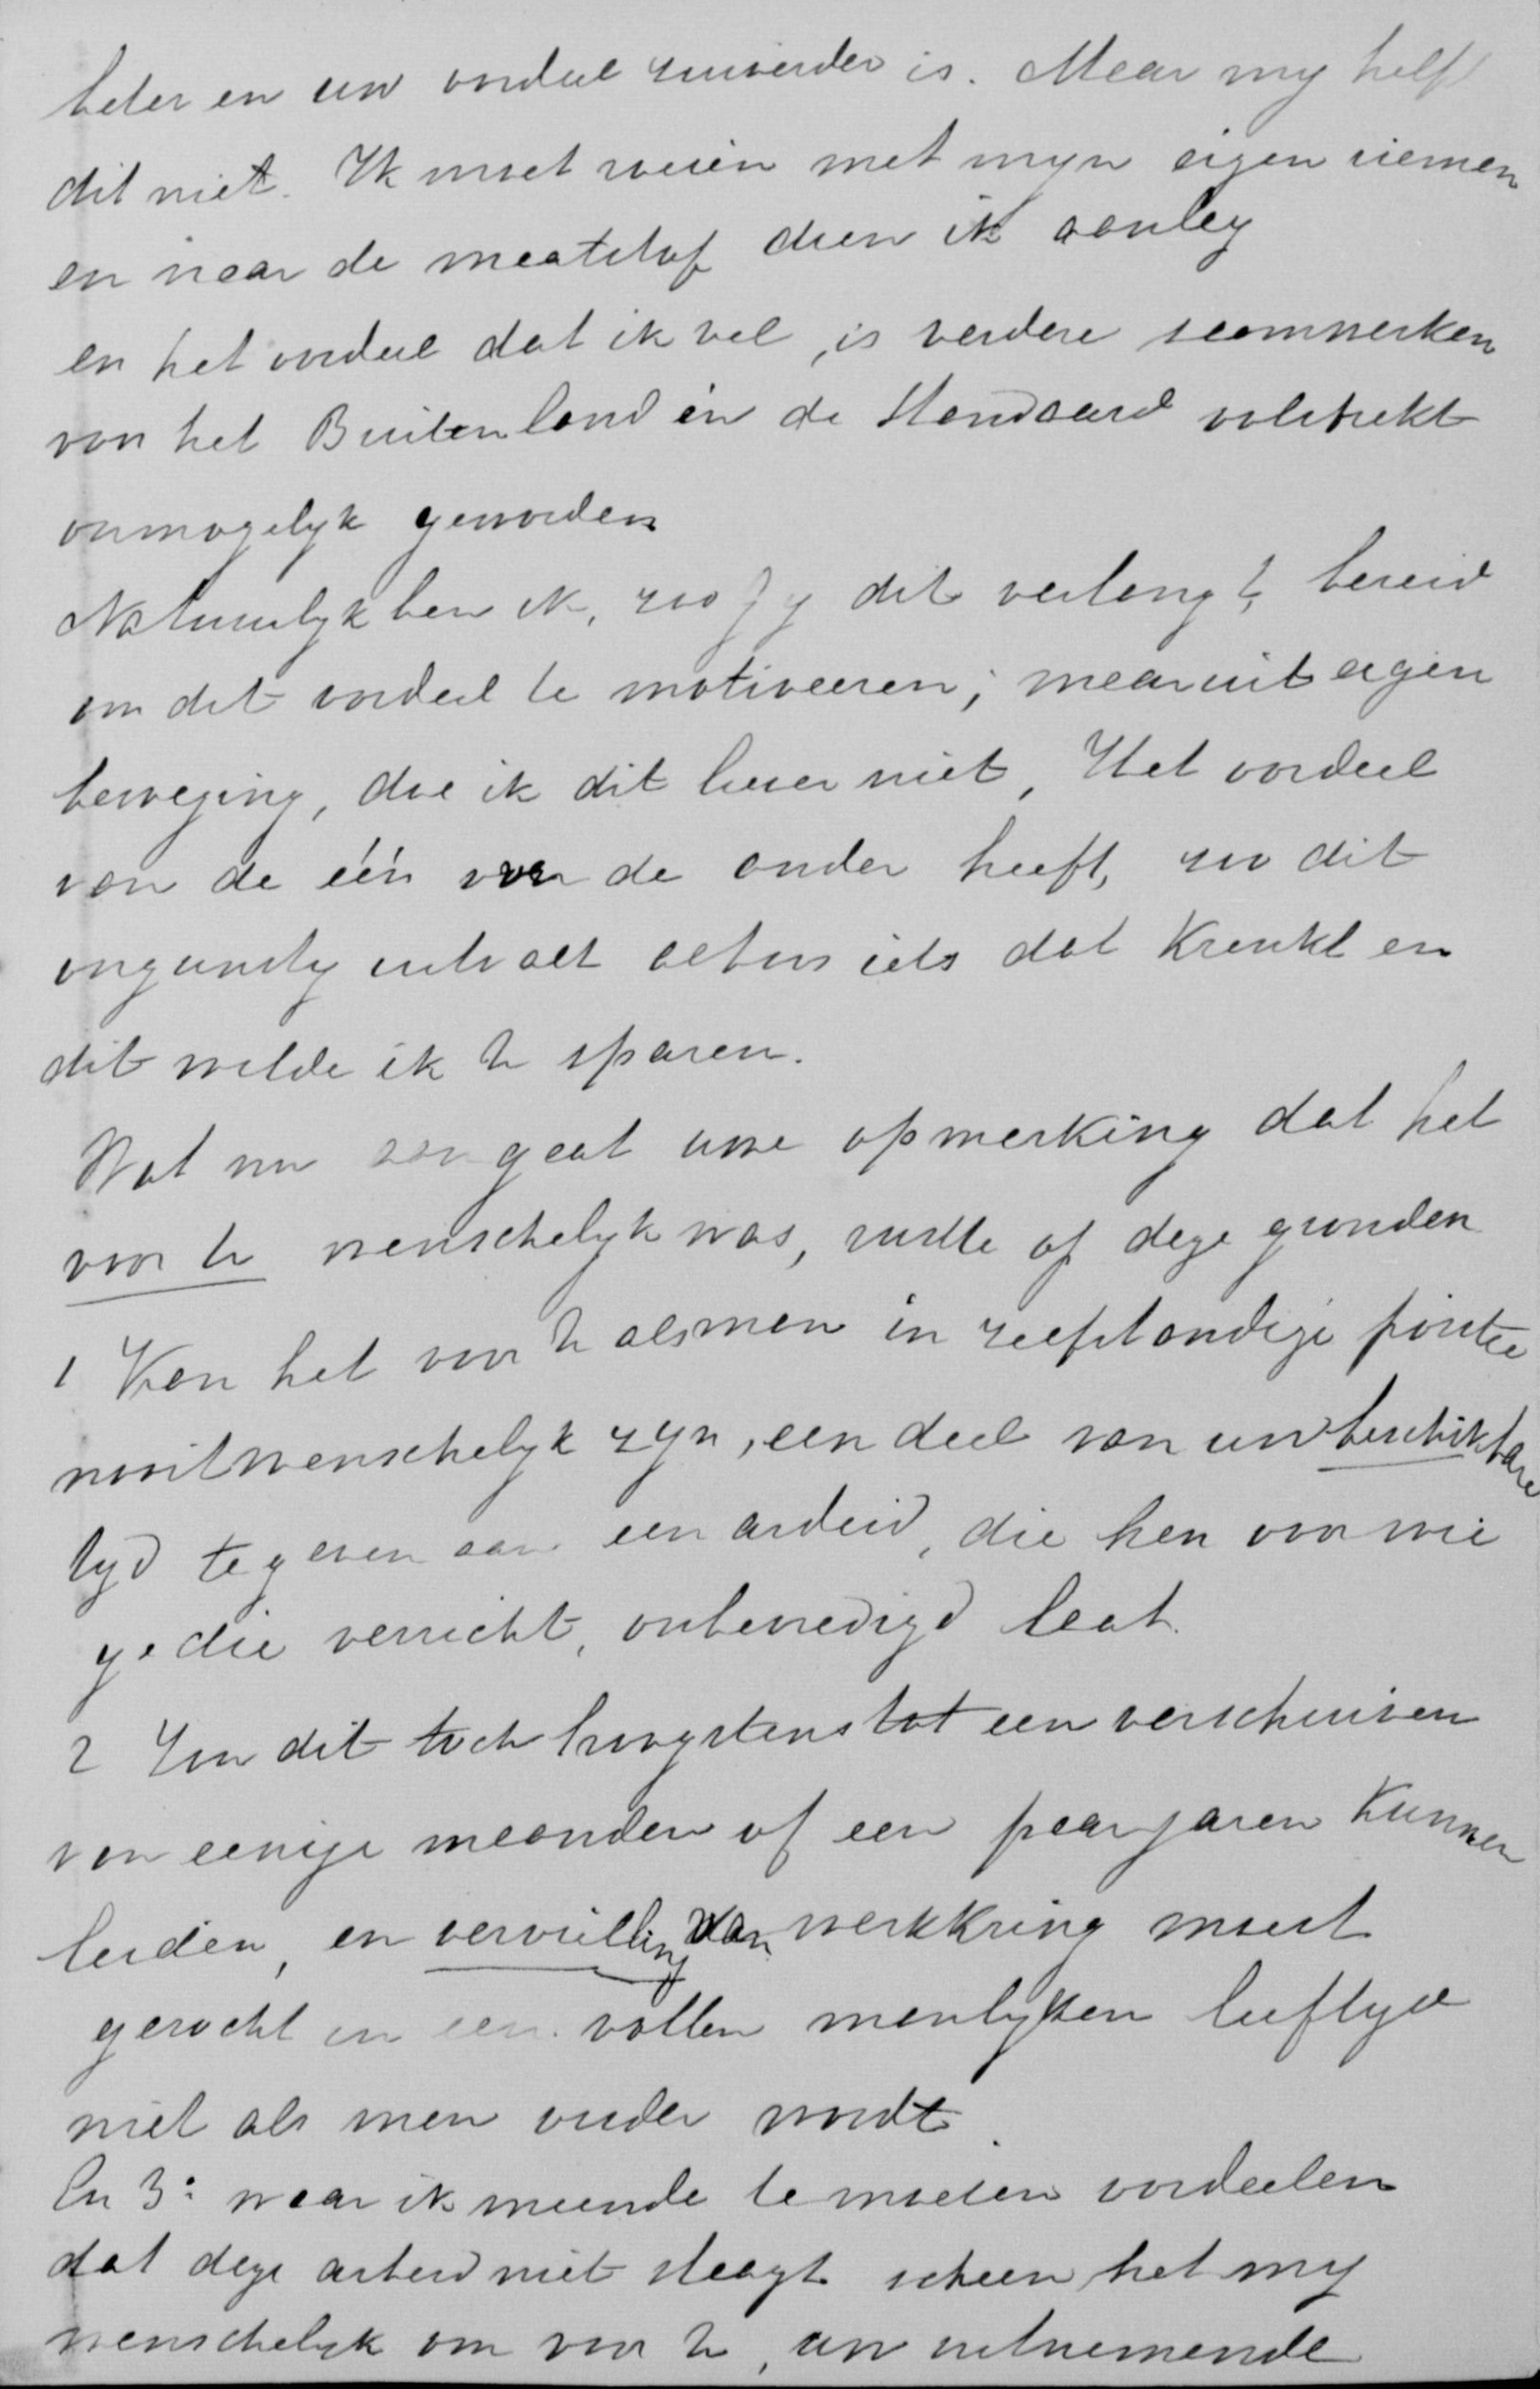 beter en uw oordeel zuiverder is. Maar my helpt
dit niet. Ik moet roeien met myn eigen riemen
en naar de maatstaf dien ik aanleg
en het oordeel dat ik vel, is verdere saamwerken
van het Buitenland in de Standaard volstrekt
onmogelyk geworden
Natuurlyk ben ik, zoo gy dit verlangt, bereid
om dit oordeel te motiveeren; maar uit eigen
beweging, doe ik dit liever niet, Het oordeel
van de één over de ander heeft, zoo dit
ongunstig uitvalt altoos iets dat krenkt en
dit wilde ik U sparen.
Wat nu aangaat uwe opmerking dat het
voor U wenschelyk was, rustte op deze gronden
1 Kan het voor U als man in zelfstandige positie
nooit wenschelyk zyn, een deel van uw beschikbare
tyd te geven aan een arbeid, die hen voor wie
ge die verricht, onbevredigd laat.
2 Zou dit toch hoogstens tot een verschuiven
van eenige maanden of een paar jaren kunnen
leiden, en vervulling van werkkring moest
gezocht in een vollen manlyken leeftyd
niet als men ouder wordt.
En 3º waar ik meende te moeten oordeelen
dat deze arbeid niet slaagt scheen het my
wenschelyk om voor U, uw uitnemende